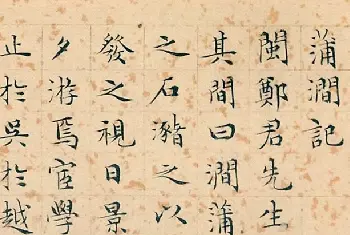 蒲澗記
閩鄭君先生
其間曰澗蒲
之石瀦之以
發之視日景
夕游焉宦學
止於吳於越